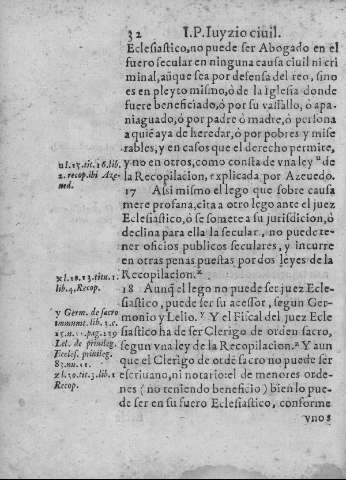 32 I.P. Iuyzio ciuil.
Eclesiastico, no puede ser Abogado en el
fuero secular en ninguna causa ciuil ni cri
minal, aũque sea por defensa del reo, sino
es en pleyto mismo, ò de la Iglesia donde
fuere beneficiado, ò por su vassallo, ò apa-
niaguado, ò por padre ò madre, ò persona
a quiẽ aya de heredar, ò por pobres y mise
rables, y en casos que el derecho permite,
y no en otros, como consta de vna ley u de
la Recopilacion, explicada por Azeuedo.
17 Asi mismo el lego que sobre causa
mere profana, cita a otro lego ante el juez
Eclesiastico, ò se somete a su jurisdicion, ò
declina para ella la secular, no puede te-
ner oficios publicos seculares, y incurre
en otras penas puestas por dos leyes de la
Recopilacion. x
18 Aunq̃ el lego no puede ser juez Ecle-
siastico, puede ser su acessor, segun Ger-
monio y Lelio. y Y el Fiscal del juez Ecle
siastico ha de ser Clerigo de orden sacro,
segun vna ley de la Recopilacion. z Y aun
que el Clerigo de ordẽ sacro no puede ser
escriuano, ni notario; el de menores orde-
nes (no teniendo beneficio) bien lo pue-
de ser en su fuero Eclesiastico, conforme
vnos
u l. 15. tit. 16. lib.
2. recop. ibi Aze-
ued.
x l. 10. 13. titu. 1.
lib. 4. Recop.
y Germ. de sacro
immunit. lib. 3. c.
Lel. de priuileg.
Eccles. priuileg.
z l. 10. tit. 3. lib. 1
Recop.